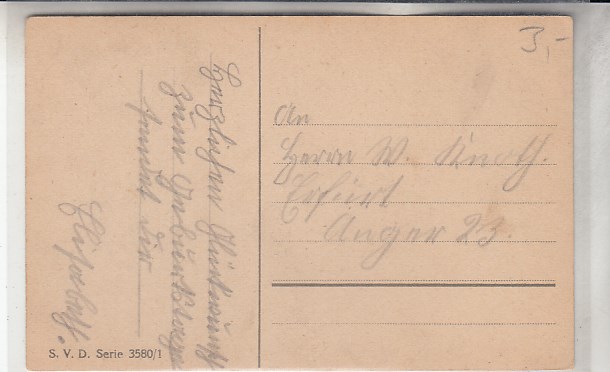 Herzlichen Glückwunsch
zum Geburtstage
sendet Dir
Elisabeth.
An
Herrn W. Knoth.
Erfurt
Anger 23.
3,-
S. V. D. Serie 3580/1